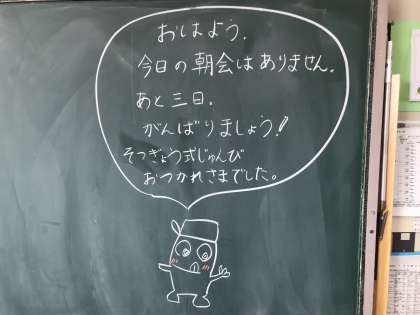 おはよう.
今日の朝会はありません.
あと三日.
がんばりましょう!
そつぎょう式じゅんび
おつかれさまでした。